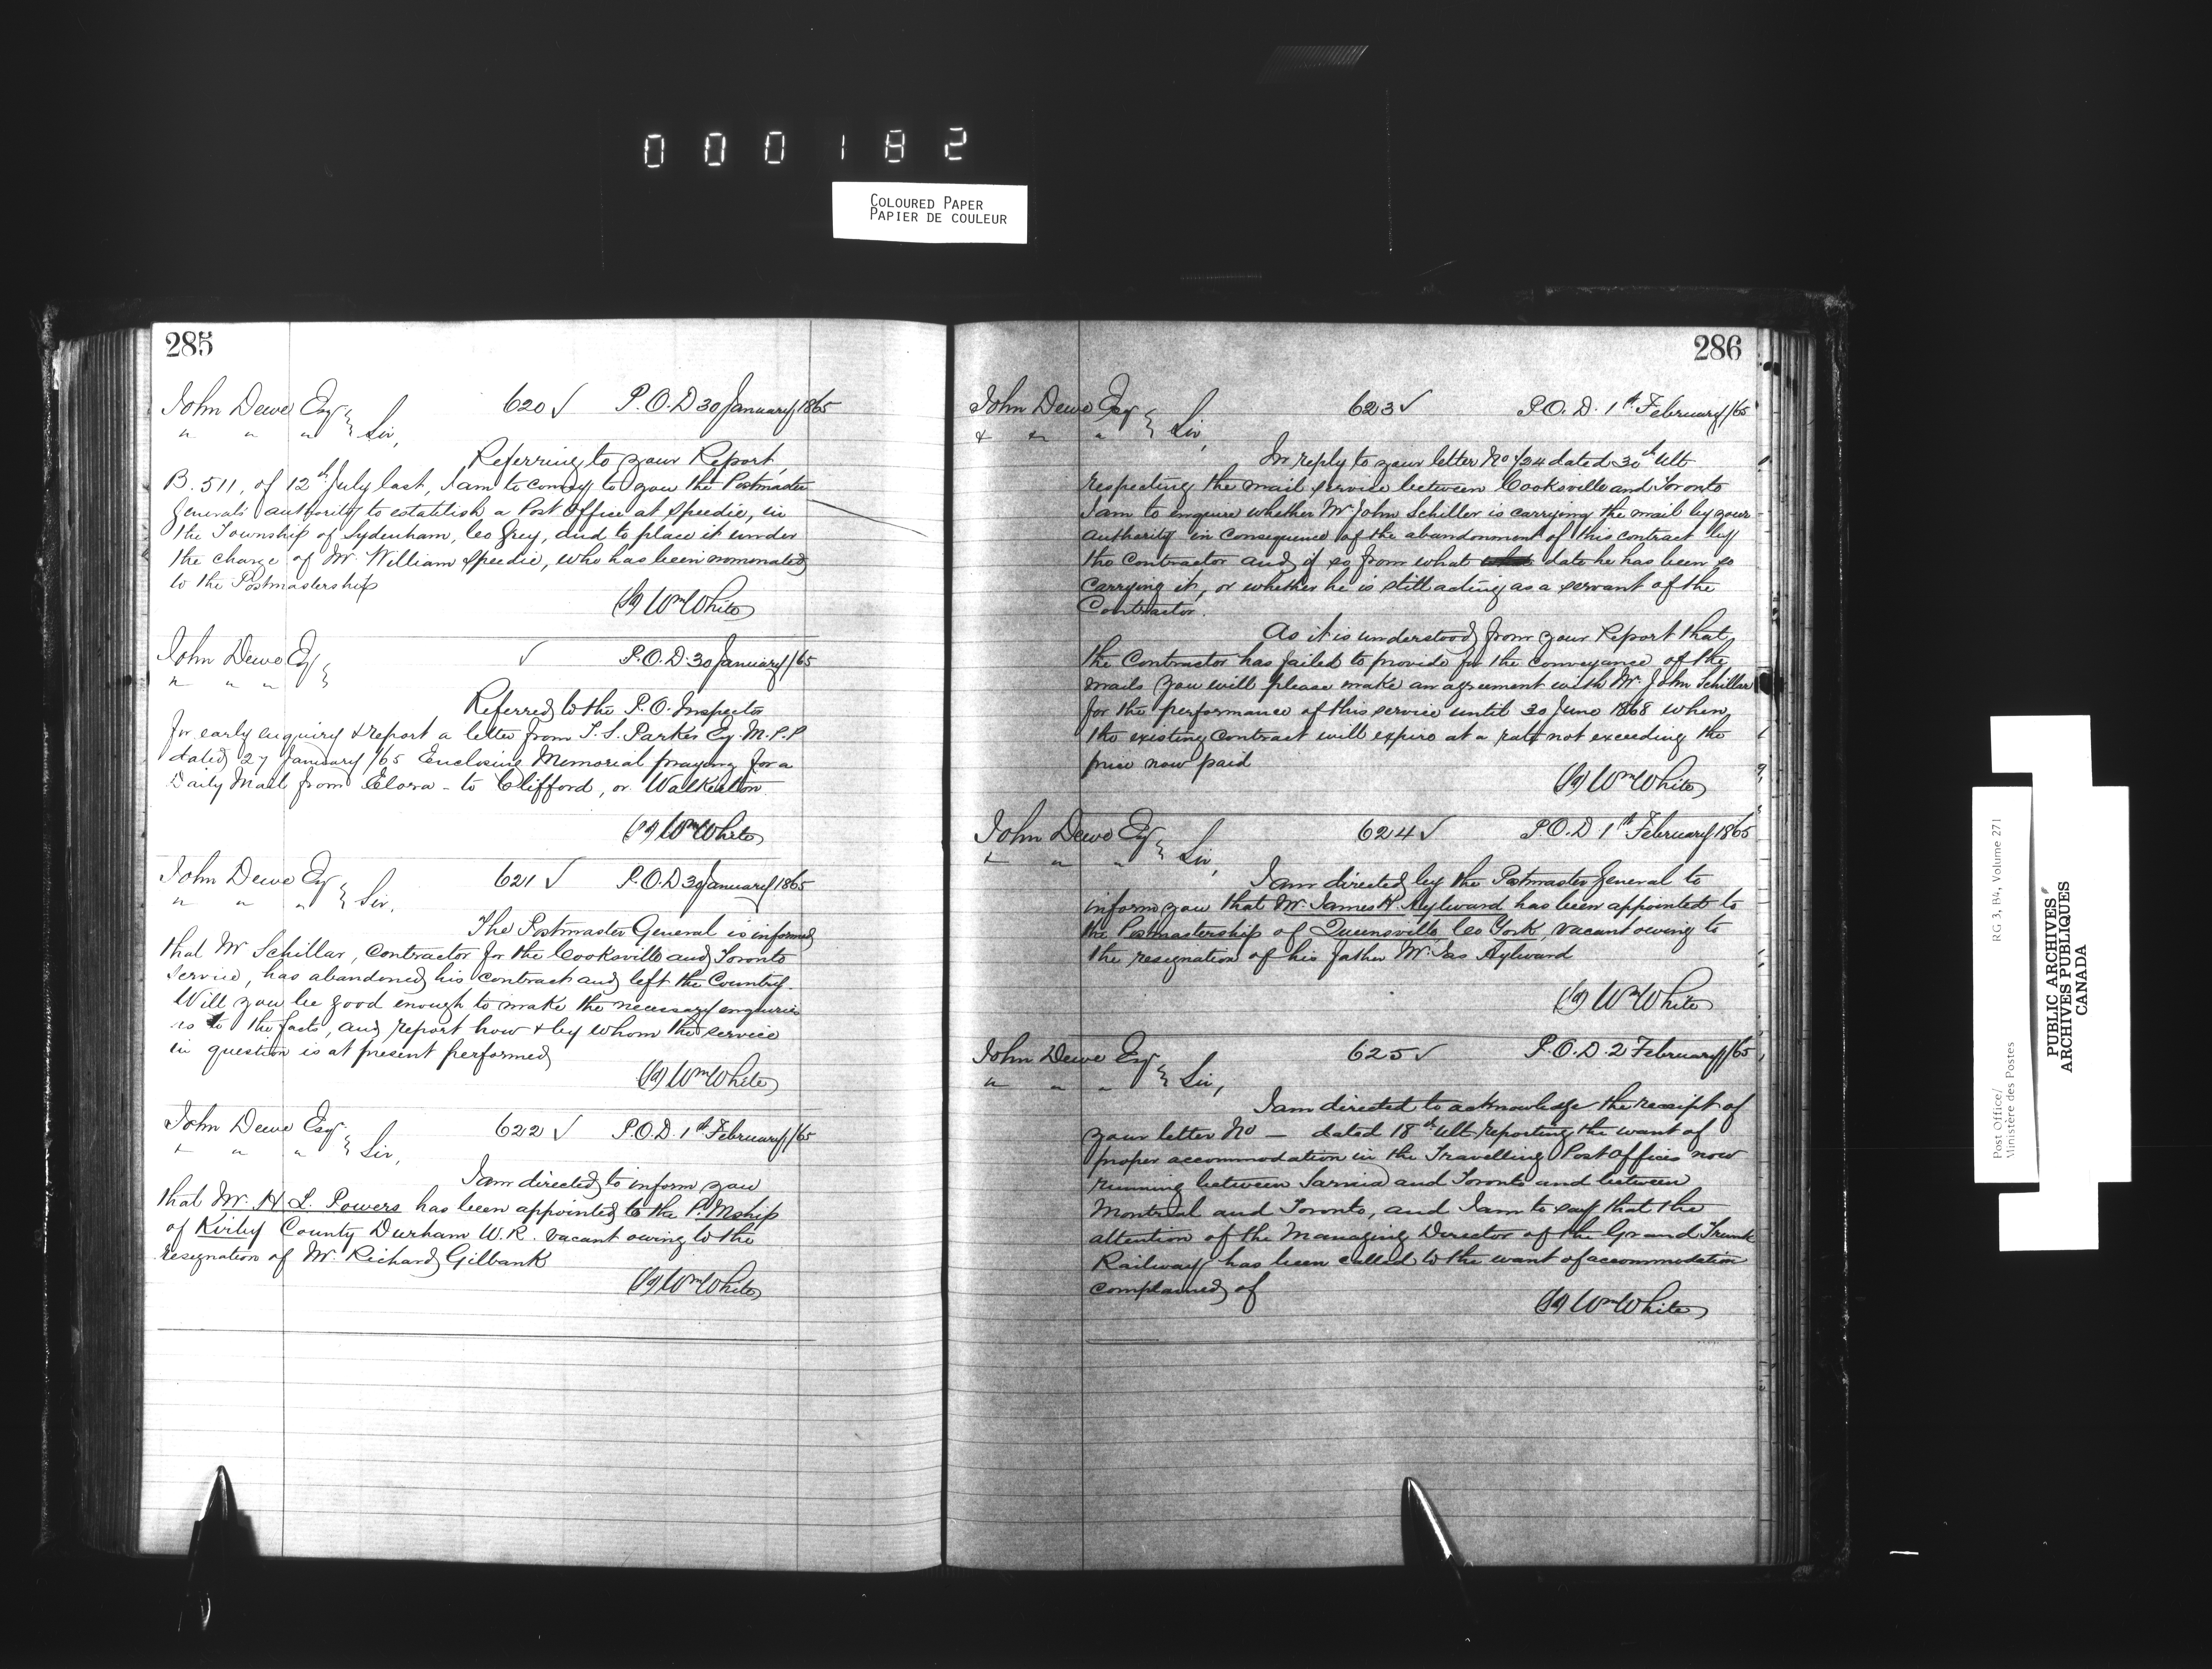 000182
COLOURED PAPER
PAPIER DE COULEUR
285
John Dewe Esqr 620 ✓ P.O.D 30 January 1865
" " " Sir,
Referring to your Report,
B. 511, of 12th July last, I am to convey to you the Postmaster
General's authority to establish a Post Office at Speedie, in
the Township of Sydenham, Co Grey, and to place it under
the charge of Mr. William Speedie, who has been nominated
to the Postmastership
(Sd) Wm White
John Dewe Esqr ✓ P.O.D. 30 January /65
" " "
Referred to the P.O. Inspector
for early enquiry & report a letter from T. S. Parker Esq. M.P.P
dated 27 January /65 Enclosing Memorial praying for a
Daily Mail from Elora - to Clifford, or Walkerton
(Sd) Wm White
John Dewe Esqr 621 ✓ P.O.D 30 January 1865
" " " Sir,
The Postmaster General is informed
that Mr Schillar, Contractor for the Cooksville and Toronto
Service, has abandoned his contract and left the Country.
Will you be good enough to make the necessary enquiries
as to the facts, and report how & by whom the service
in question is at present performed
(Sd) Wm White
John Dewe Esqr 622 ✓ P.O.D. 1st February /65
" " " Sir,
I am directed to inform you
that Mr. H L. Powers has been appointed to the P.Mship
of Kirby County Durham W.R. vacant owing to the
resignation of Mr. Richard Gilbank
(Sd) Wm White
286
John Dewe Esqr 623 ✓ P.O.D. 1st February /65
" " " Sir,
In reply to your letter No dated 30th Ult
respecting the mail service between Cooksville and Toronto
I am to enquire whether Mr John Schiller is carrying the mail by your
authority in consequence of the abandonment of this contract by
the Contractor and if so from what date he has been so
carrying it, or whether he is still acting as a servant of the
Contractor.
As it is understood from your Report that
the Contractor has failed to provide for the conveyance of the
mails you will please make an agreement with Mr. John Schillar
for the performance of this service until 30 June 1868 when
the existing Contract will expire at a rate not exceeding the
price now paid
(Sd) Wm White
John Dewe Esqr 624 ✓ P.O.D. 1st February 1865
" " " Sir,
I am directed by the Postmaster General to
inform you that Mr. James H. Aylward has been appointed to
the Postmastership of Queensville, Co York, vacant owing to
the resignation of his father Mr. Jas Aylward
(Sd) Wm White
John Dewe Esqr 625 ✓ P.O.D. 2 February /65
" " " Sir,
I am directed to acknowledge the receipt of
your letter No — dated 18th Ult reporting the want of
proper accommodation in the Travelling Post Offices now
running between Sarnia and Toronto and between
Montreal and Toronto, and I am to say that the
attention of the Managing Director of the Grand Trunk
Railway has been called to the want of accommodation
complained of
(Sd) Wm White
Post Office/ RG 3, B4, Volume 271
Ministère des Postes
PUBLIC ARCHIVES
ARCHIVES PUBLIQUES
CANADA